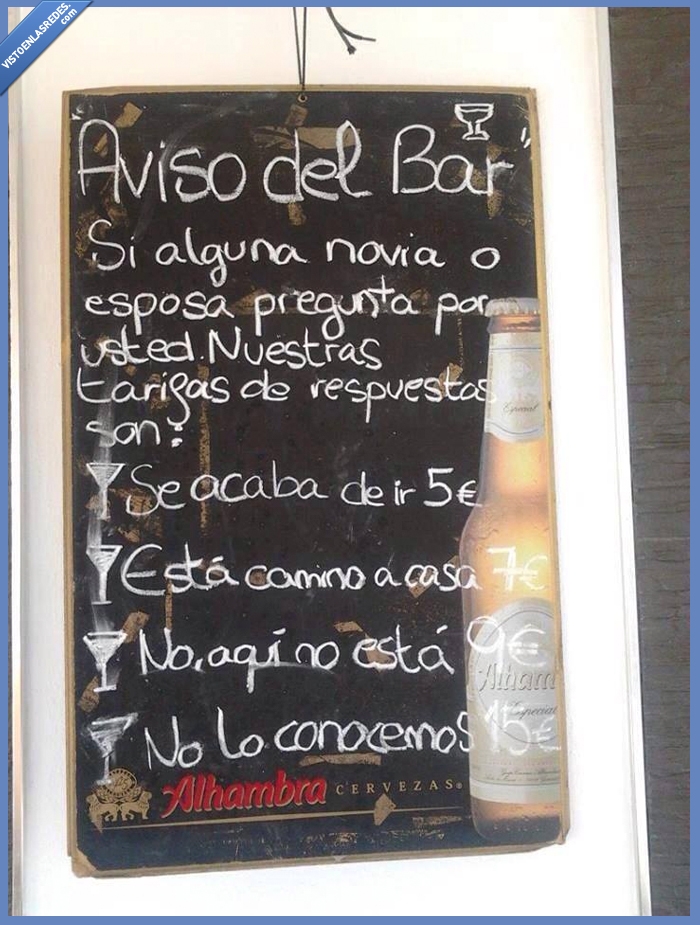 VISTOENLASREDES.com
Aviso del Bar
Si alguna novia o
esposa pregunta por
usted. Nuestras
tarifas de respuestas
son:
Se acaba de ir 5€
Está camino a casa 7€
No, aquí no está 9€
No lo conocemos 15€
Alhambra CERVEZAS
Especial
Alham
Especial